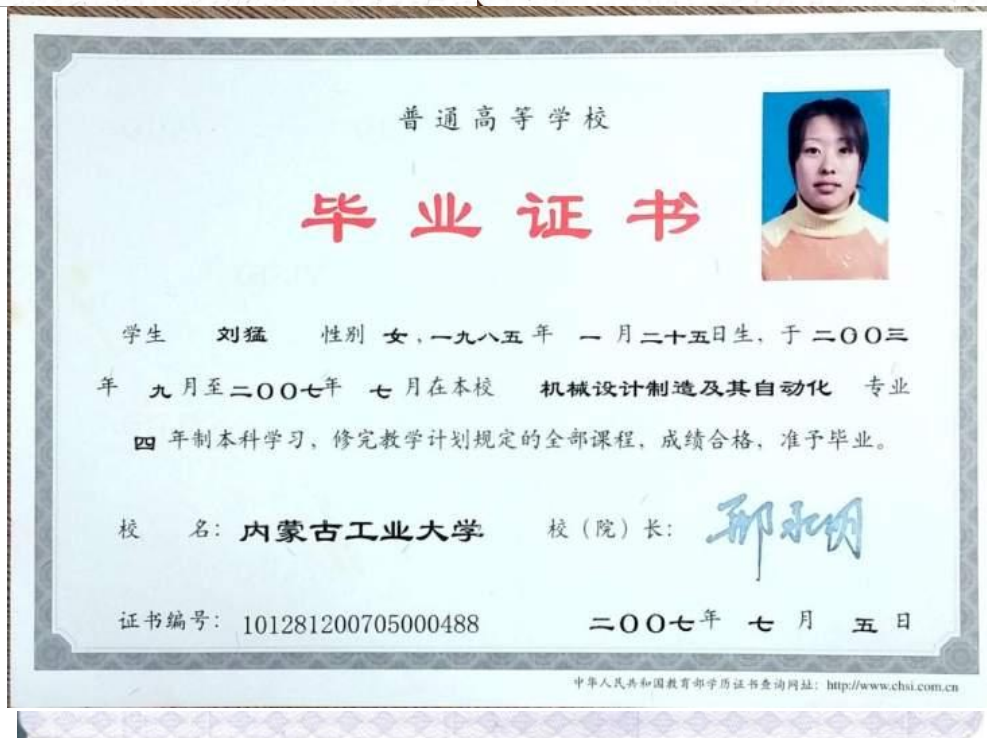 普通高等学校
毕业证书
学生 刘猛 性别 女，一九八五年 一月二十五日生，于二〇〇三
年 九月至二〇〇七年 七月在本校 机械设计制造及其自动化 专业
四年制本科学习，修完教学计划规定的全部课程，成绩合格，准予毕业。
校 名：内蒙古工业大学 校（院）长：邢永明
证书编号：101281200705000488 二〇〇七年 七月 五日
中华人民共和国教育部学历证书查询网址：http://www.chsi.com.cn